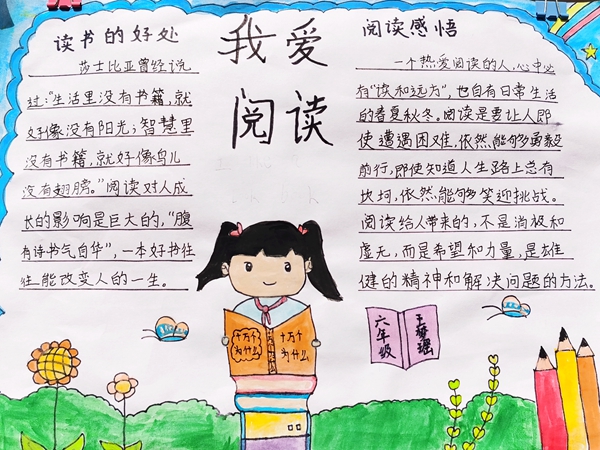 我爱
阅读
读书的好处
莎士比亚曾经说
过:“生活里没有书籍,就
好像没有阳光;智慧里
没有书籍,就好像鸟儿
没有翅膀。”阅读对人成
长的影响是巨大的,“腹
有诗书气自华”,一本好书往
往能改变人的一生。
阅读感悟
一个热爱阅读的人,心中必
有“读和远方”,也自有日常生活
的春夏秋冬。阅读是要让人即
使遭遇困难,依然能够勇毅
前行,即使知道人生路上总有
坎坷,依然能够笑迎挑战。
阅读给人带来的,不是消极和
虚无,而是希望和力量,是雄
健的精神和解决问题的方法。
十万个
为什么
十万个
为什么
六年级